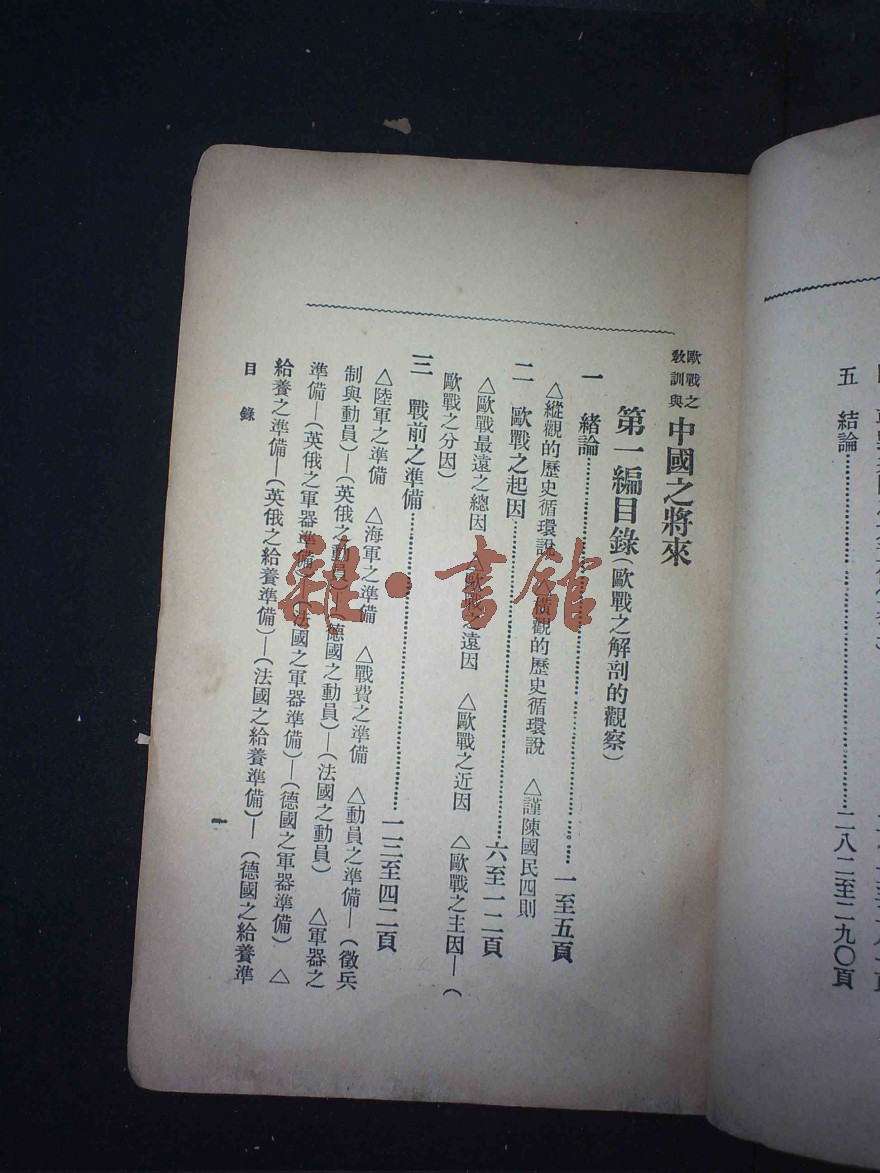 歐戰之教訓與 中國之將來
第一編目錄(歐戰之解剖的觀察)
一 緒論……一至五頁
△縱觀的歷史循環說 △橫觀的歷史循環說 △謹陳國民四則
二 歐戰之起因……六至一二頁
△歐戰最遠之總因 △歐戰之遠因 △歐戰之近因 △歐戰之主因—(
歐戰之分因)
三 戰前之準備……一三至四二頁
△陸軍之準備 △海軍之準備 △戰費之準備 △動員之準備—(徵兵
制與動員)—(英俄之動員)—(德國之動員)—(法國之動員) △軍器之
準備—(英俄之軍器準備)—(法國之軍器準備)—(德國之軍器準備) △
給養之準備—(英俄之給養準備)—(法國之給養準備)—(德國之給養準
目錄
一
五 結論……二八二至二九〇頁
雜·書館